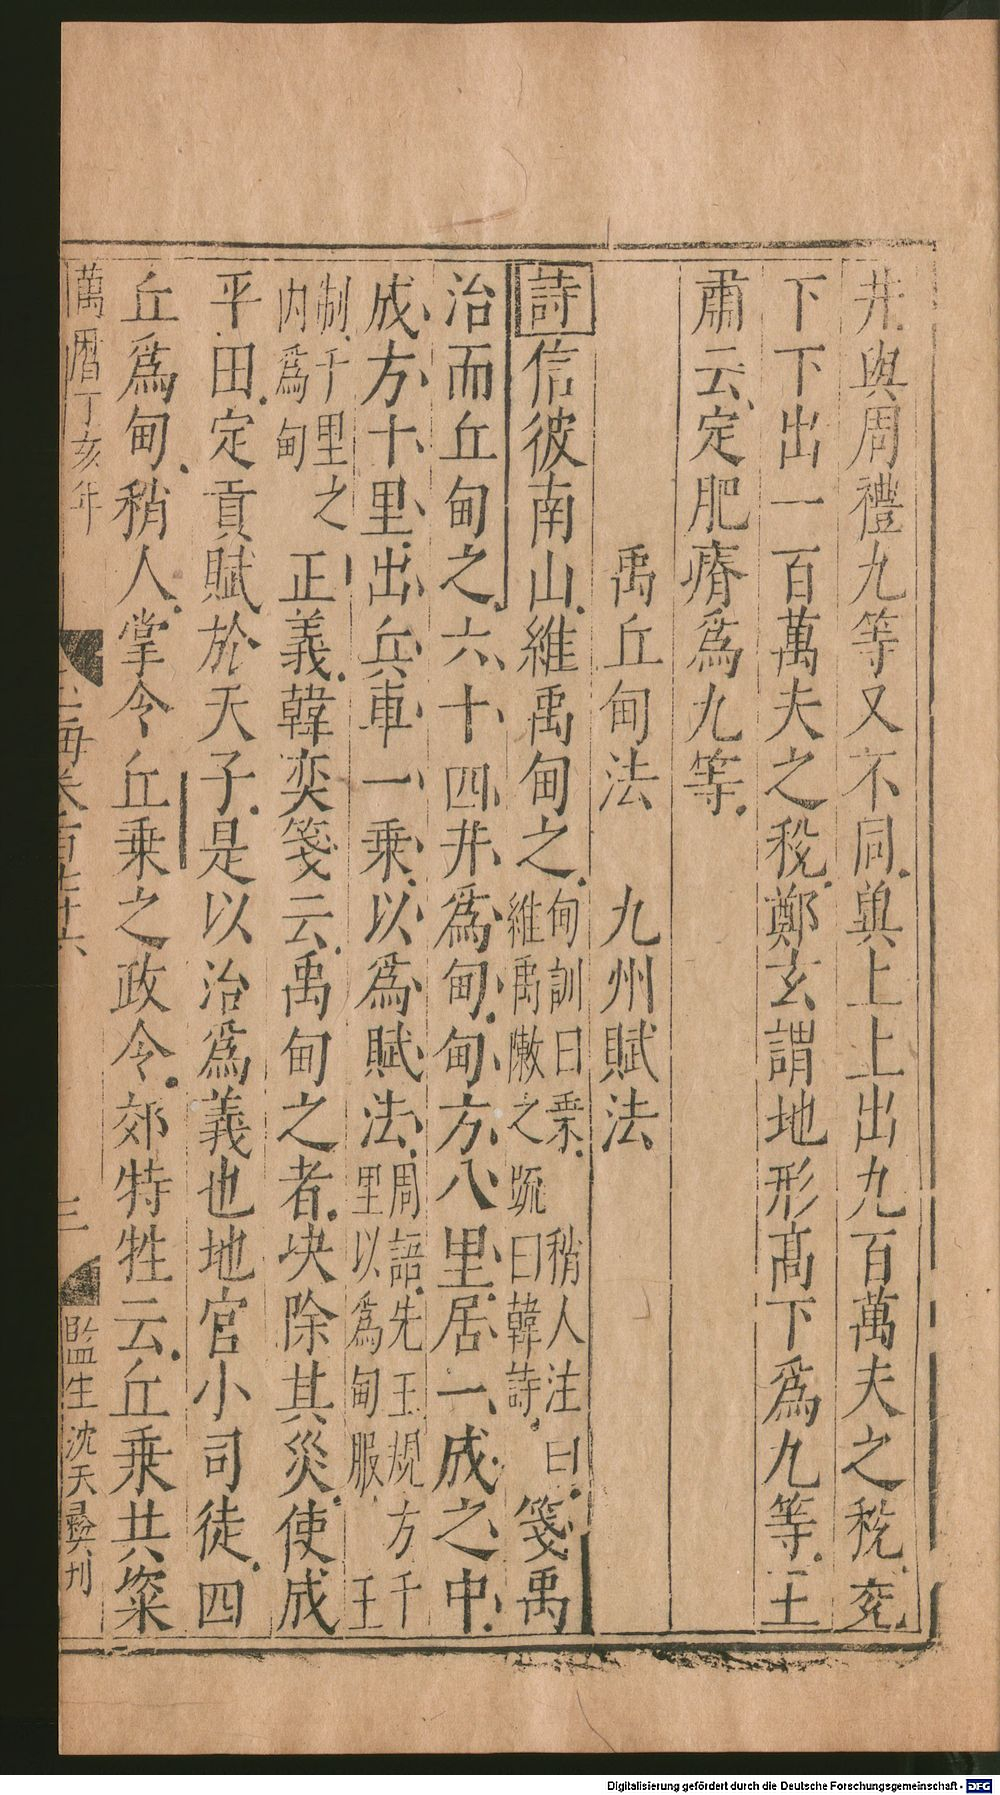 井與周禮九等又不同與上上出九百萬夫之稅兖
下下出一百萬夫之稅鄭玄謂地形高下爲九等王
肅云定肥瘠爲九等
禹丘甸法　九州賦法
詩信彼南山維禹甸之甸訓曰乗　稍人注曰維禹敶之　䟽曰韓詩箋禹
治而丘甸之六十四井爲甸甸方八里居一成之中
成方十里出兵車一乗以爲賦法周語先王規方千里以爲甸服　王
制千里之内爲甸正義韓奕箋云禹甸之者决除其災使成
平田定貢賦於天子是以治爲義也地官小司徒四
丘爲甸稍人掌令丘乗之政令郊特牲云丘乗共粢
萬曆丁亥年　玉海卷百七十六　三　監生沈天彛刊
Digitalisierung gefördert durch die Deutsche Forschungsgemeinschaft - DFG